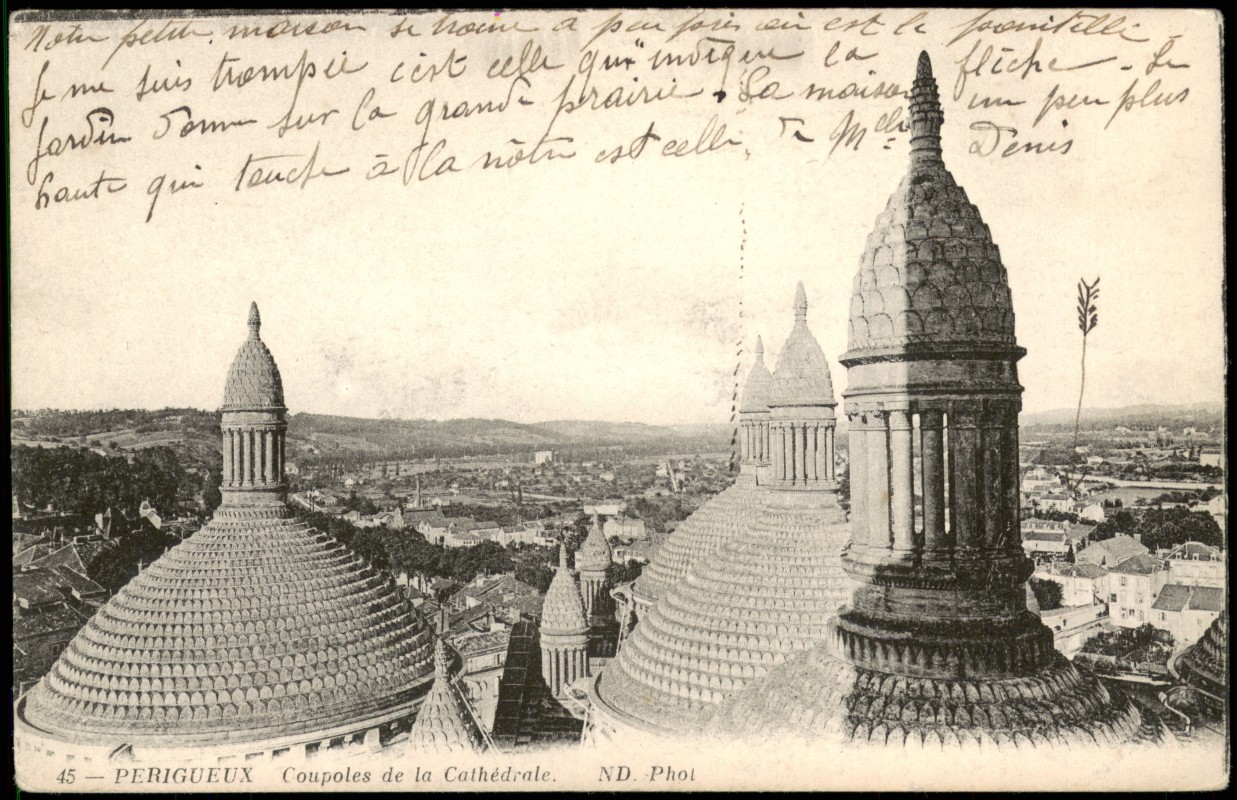 Notre petite maison se trouve à peu près où est le pointillé.
Je me suis trompée c'est celle qui indique la flèche - Le
jardin donne sur la grande prairie. La maison un peu plus
haute qui touche à la nôtre est celle de Mlle Denis
45 — PERIGUEUX Coupoles de la Cathédrale. ND. Phot